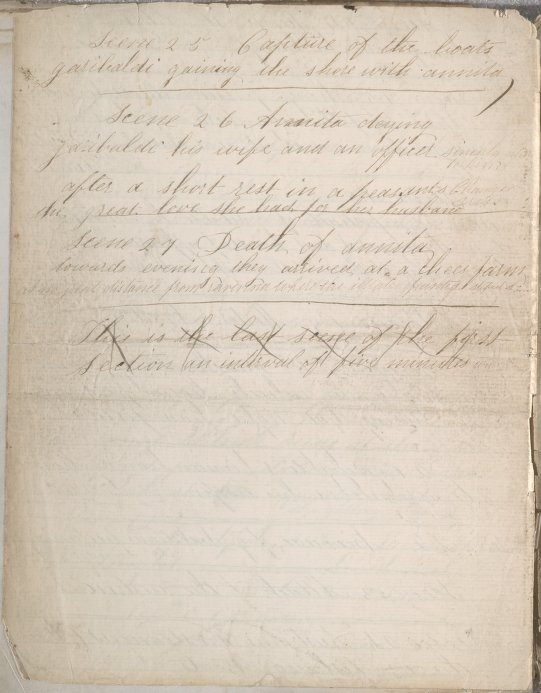 Scene 25 Capture of the boats
garibaldi gaining the shore with annita
Scene 26 Annita deying
garibaldi his wife and an officer
after a short rest in a peasants
the great love she had for her husband
Scene 27 Death of annita
towards evening they arrived at a chees farm
at no great distance from ravenna where the
This is the last scene of the first
Section an interval of five minutes